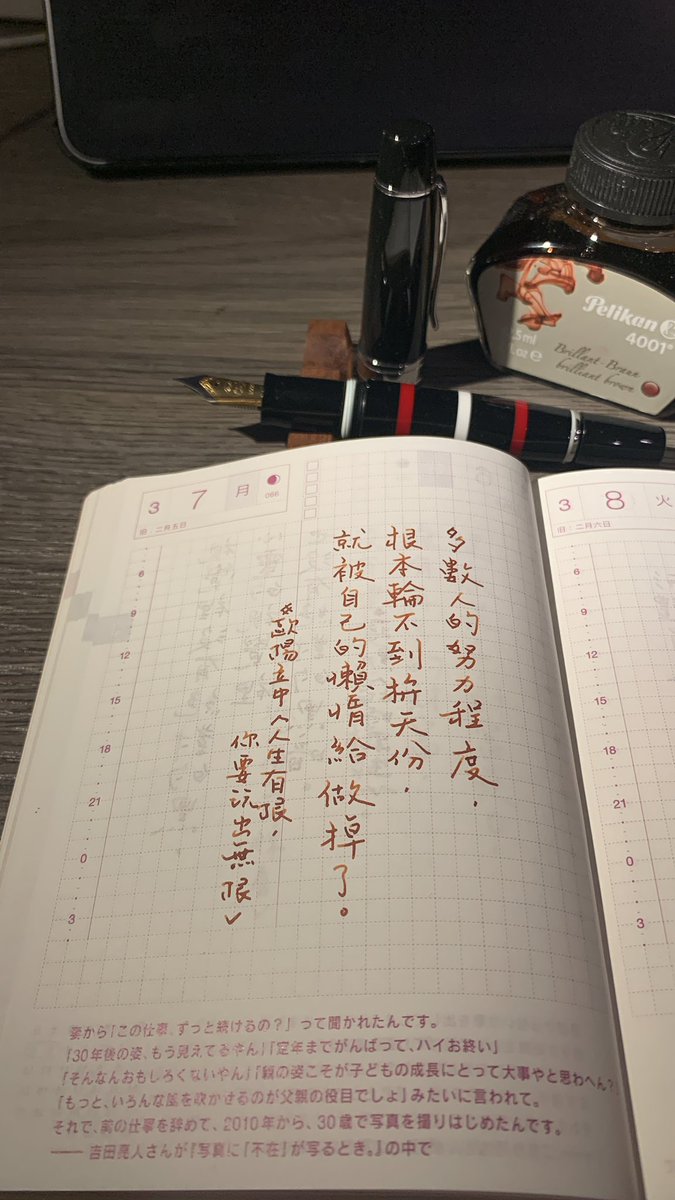 Pelikan
4001®
5ml
oz ℮
Brillant-Braun
brilliant brown
3 7 月
066
旧:二月五日
3 8 火
旧:二月六日
多數人的努力程度，
根本輪不到拚天份，
就被自己的懶惰給做掉了。
*歐陽立中《人生有限，
你要玩出無限》
6
9
12
15
18
21
0
3
6
9
12
15
18
21
0
3
妻から「この仕事、ずっと続けるの？」って聞かれたんです。
「30年後の姿、もう見えてるやん」「定年までがんばって、ハイお終い」
「そんなんおもしろくないやん」「親の姿こそが子どもの成長にとって大事やと思わへん？」
「もっと、いろんな風を吹かせるのが父親の役目でしょ」みたいに言われて。
それで、前の仕事を辞めて、2010年から、30歳で写真を撮りはじめたんです。
—— 吉田亮人さんが『写真に「不在」が写るとき。』の中で